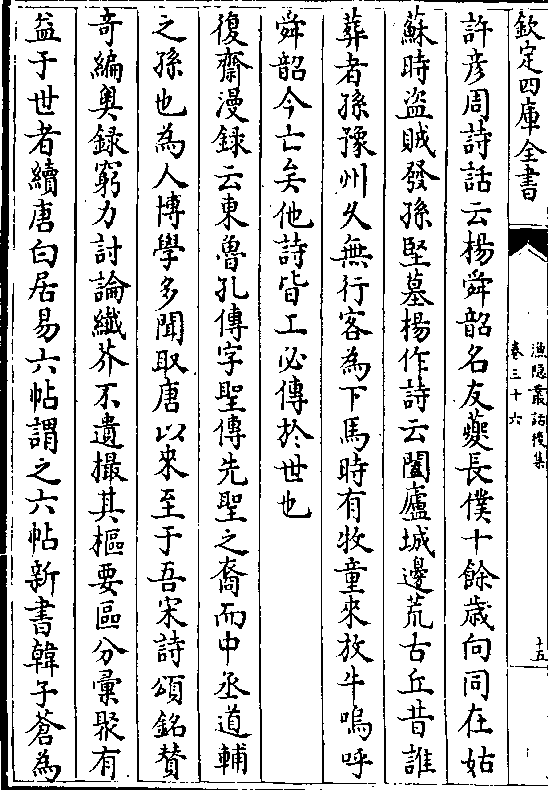 欽定四庫全書
漁隠叢話後集
卷三十六
十五
許彦周詩話云楊舜韶名友夔長僕十餘歳向同在姑
蘇時盗賊發孫堅墓楊作詩云闔廬城邊荒古丘昔誰
葬者孫豫州久無行客為下馬時有牧童來放牛嗚呼
舜韶今亡矣他詩皆工必傳於世也
復齋漫録云東魯孔傳字聖傳先聖之裔而中丞道輔
之孫也為人博學多聞取唐以來至于吾宋詩頌銘賛
竒編奥録窮力討論纖芥不遺撮其樞要區分彚聚有
益于世者續唐白居易六帖謂之六帖新書韓子蒼為